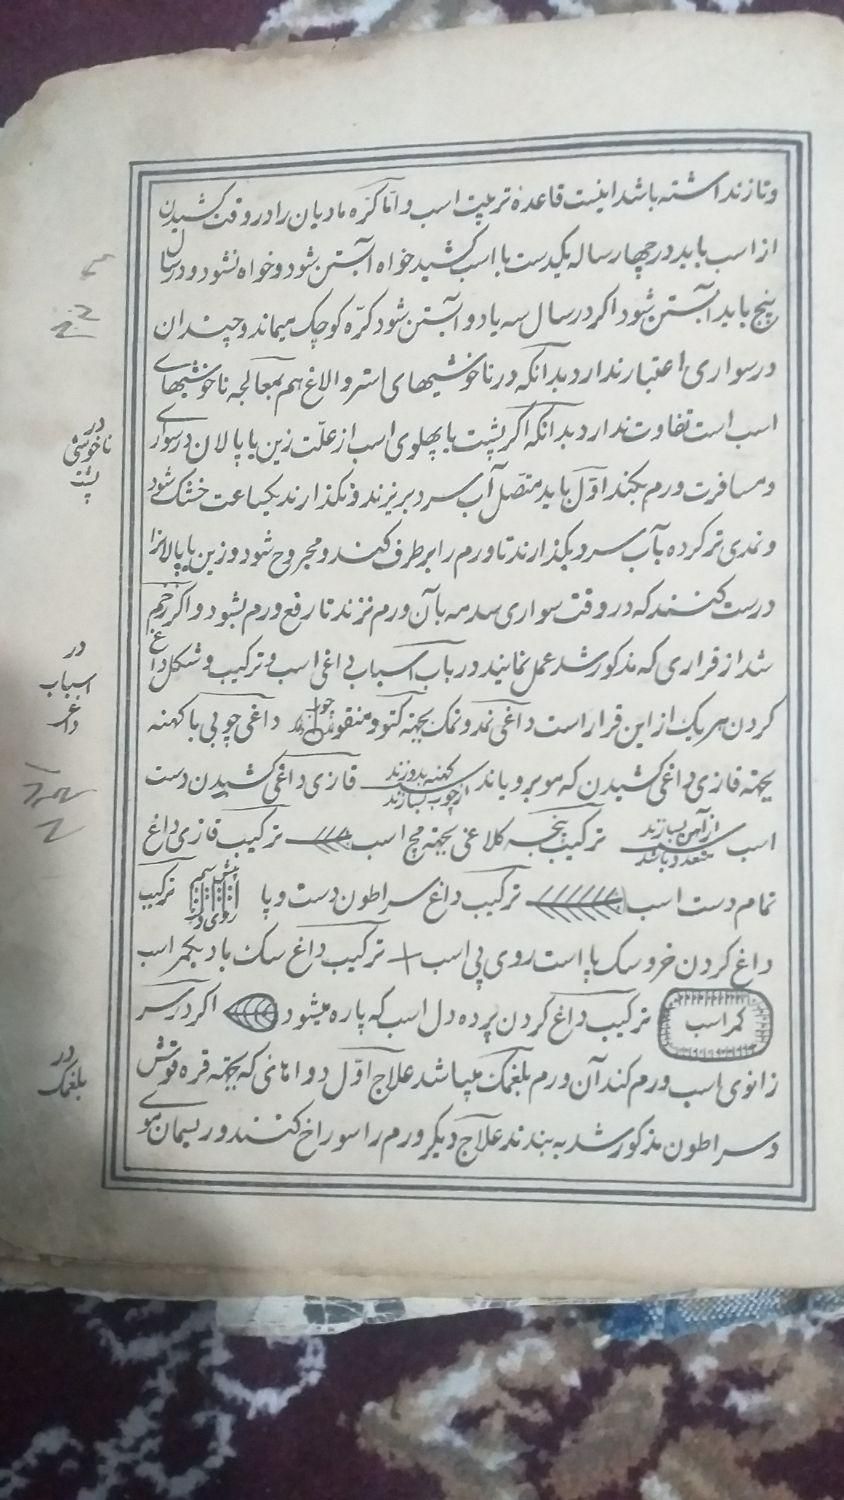 وتازنداشته باشد اینست قاعدهٔ تربیت اسب و امّا کرّه مادیان را در وقت کشیدن
از اسب باید در چهار ساله یکدست با اسب کشید خواه آبستن شود و خواه نشود و در سال
پنج باید آبستن شود اگر در سال سه یا دو آبستن شود کرّه کوچک میماند و چندان
در سواری اعتبار ندارد بدانکه در ناخوشیهای استر و الاغ هم بمعالجه ناخوشیهای
اسب است تفاوت ندارد بدانکه اگر پشت یا پهلوی اسب از علّت زین یا پالان در سواری
در ناخوشی پشت
و مسافرت ورم بکند اوّل باید متصّل آب سرد بریزند و نگذارند یکساعت خشک شود
و نمدی تر کرده بآب سرد بگذارند تا ورم را برطرف کند و مجروح شود و زین یا پالانرا
درست کنند که در وقت سواری صدمه بآن ورم نزند تا رفع ورم بشود و اگر زخم
شد از قراری که مذکور شد عمل نمایند در باب اسباب داغی اسب و ترکیب و شکل داغ
در اسباب داغ
کردن هر یک از این قرار است داغی نمد و نمک بجهته کتو و منقو داغی چوبی با کهنه
بجهته قازی داغی کشیدن که موبر و یاند کهنه بدوزند از چوب بسازند قازی داغی کشیدن دست
اسب از آهن بسازند متعدد باشد ترکیب پنجه کلاغی بجهته مچ اسب ترکیب قازی داغ
تمام دست اسب ترکیب داغ سراطون دست و پا پیش سم روی دست ترکیب
داغ کردن خروسک پا است روی پی اسب ترکیب داغ سک باد بکمر اسب
کمر اسب ترکیب داغ کردن پرده دل اسب که پاره میشود اگر در سر
زانوی اسب ورم کند آن ورم بلغمک میباشد علاج اوّل دواهائی که بجهته قره قوش
در بلغمک
و سراطون مذکور شد به بندند علاج دیگر ورم را سوراخ کنند و ریسمان موی